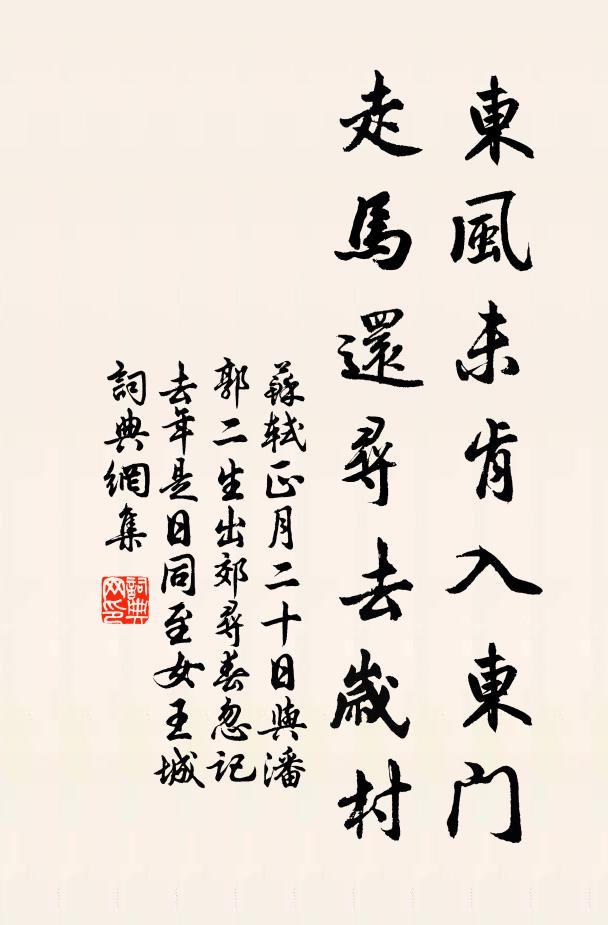 東風未肯入東门
走馬還尋去歲村
蘇軾正月二十日與潘
郭二生出郊尋春忽記
去年是日同至女王城
詞典網集
詞典
网印